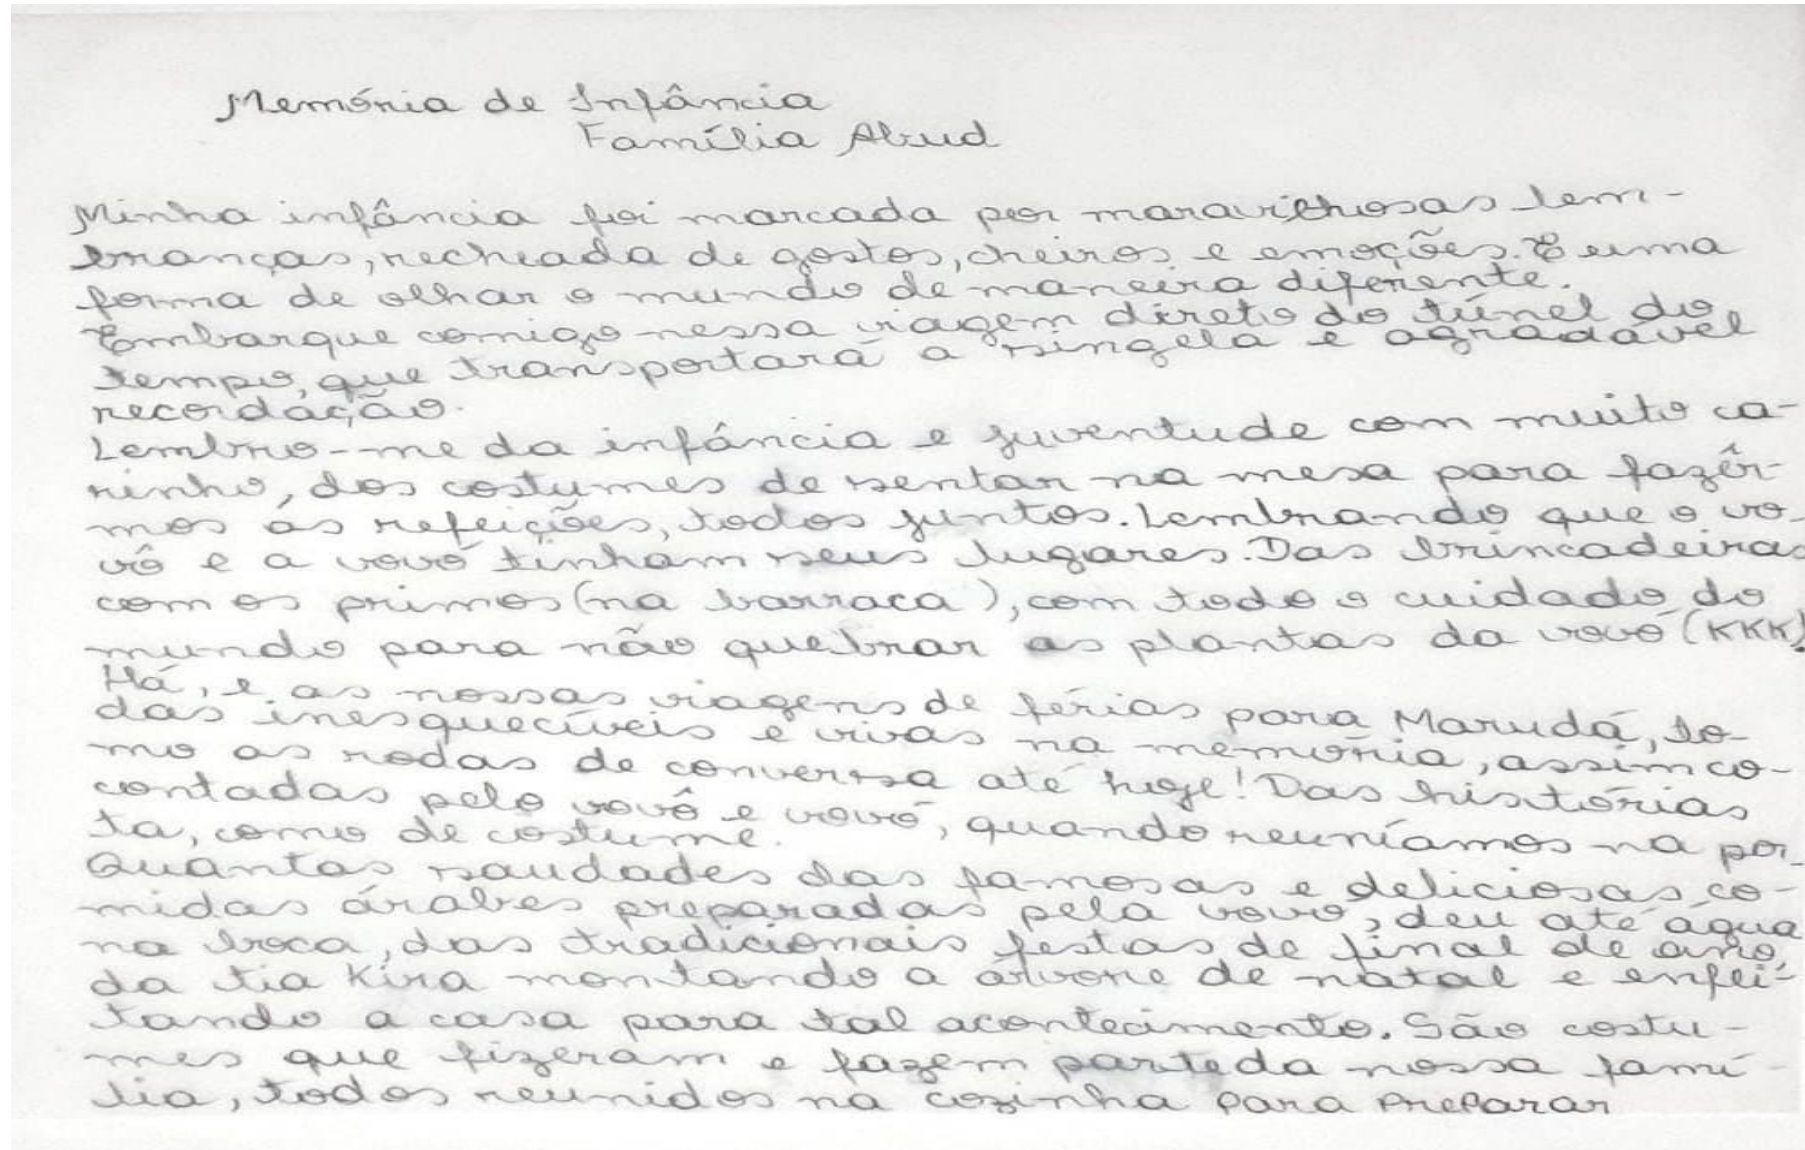 Memória de Infância
Família Abud
Minha infância foi marcada por maravilhosas lem-
branças, recheada de gostos, cheiros e emoções. E uma
forma de olhar o mundo de maneira diferente.
Embarque comigo nessa viagem direto do túnel do
tempo, que transportará a singela e agradável
recordação.
Lembro-me da infância e juventude com muito ca-
rinho, dos costumes de sentar na mesa para fazêr-
mos ás refeições, todos juntos. Lembrando que o vo-
vô e a vovó tinham seus lugares. Das brincadeiras
com os primos (na barraca), com todo o cuidado do
mundo para não quebrar as plantas da vovó (KKK)!
Há, e as nossas viagens de férias para Marudá, to-
das inesquecíveis e vivas na memória, assim co-
mo as rodas de conversa até hoje! Das histórias
contadas pelo vovô e vovó, quando reuníamos na por-
ta, como de costume.
Quantas saudades das famosas e deliciosas co-
midas árabes preparadas pela vovó, deu até água
na boca, das tradicionais festas de final de ano,
da tia Kira montando a árvore de natal e enfei-
tando a casa para tal acontecimento. São costu-
mes que fizeram e fazem parte da nossa famí-
lia, todos reunidos na cozinha para preparar